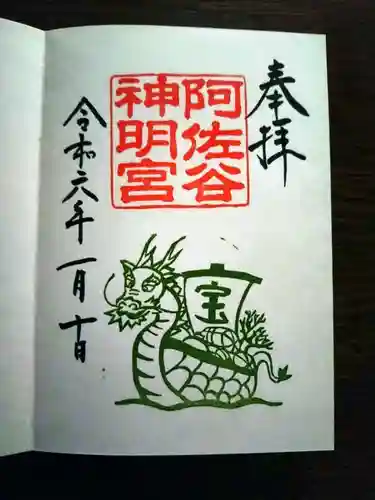 奉拝
阿佐谷
神明宮
宝
令和六年一月十日